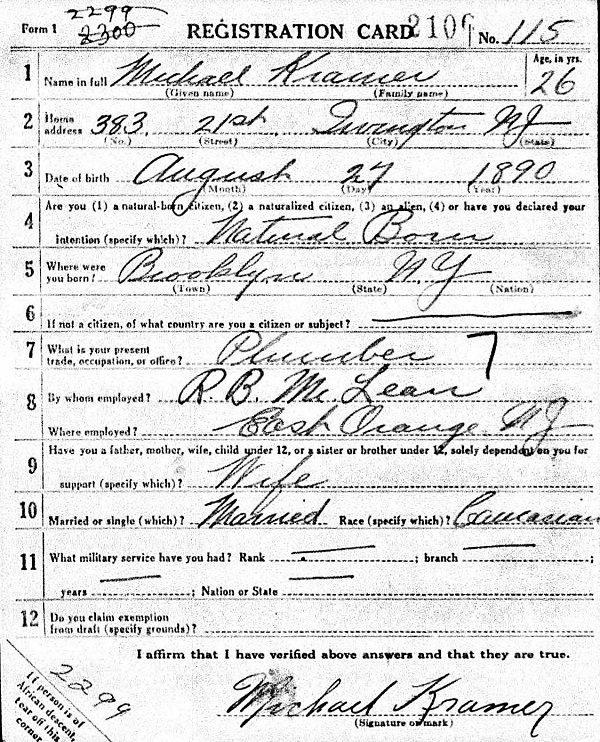 2299
Form 1 2300 REGISTRATION CARD 2106 No. 115
1 Name in full Michael Kramer Age, in yrs. 26
(Given name) (Family name)
2 Home address 383 21st Irvington NJ
(No.) (Street) (City) (State)
3 Date of birth August 27 1890
(Month) (Day) (Year)
4 Are you (1) a natural-born citizen, (2) a naturalized citizen, (3) an alien, (4) or have you declared your
intention (specify which)? Natural Born
5 Where were you born? Brooklyn N.Y
(Town) (State) (Nation)
6 If not a citizen, of what country are you a citizen or subject?
7 What is your present
trade, occupation, or office? Plumber 7
8 By whom employed? R. B. Mc Lean
Where employed? East Orange NJ
9 Have you a father, mother, wife, child under 12, or a sister or brother under 12, solely dependent on you for
support (specify which)? Wife
10 Married or single (which)? Married Race (specify which)? Caucasian
11 What military service have you had? Rank ; branch ;
years ; Nation or State
12 Do you claim exemption
from draft (specify grounds)?
I affirm that I have verified above answers and that they are true.
2299
If person is of
African descent,
tear off this
corner
Michael Kramer
(Signature or mark)